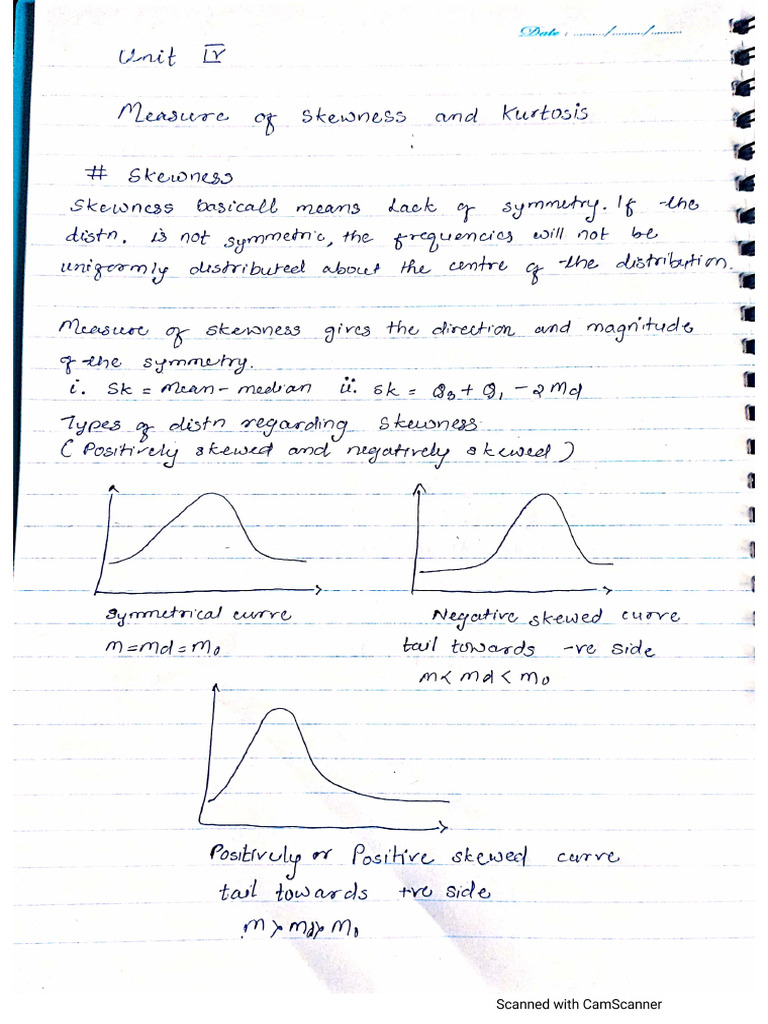 Date : ........../........../..........
Unit IV
Measure of Skewness and Kurtosis
# Skewness
Skewness basicall means Lack of symmetry. If the
distn. is not symmetric, the frequencies will not be
uniformly distributed about the centre of the distribution.
Measure of skewness gives the direction and magnitude
of the symmetry.
i. Sk = Mean - median ii. Sk = Q3 + Q1 - 2Md
Types of distn regarding Skewness
(Positively skewed and negatively skewed)
Symmetrical curve
M=Md=Mo
Negative skewed curve
tail towards -ve side
M< Md < Mo
Positively or Positive skewed curve
tail towards +ve side
M>Md>Mo
Scanned with CamScanner